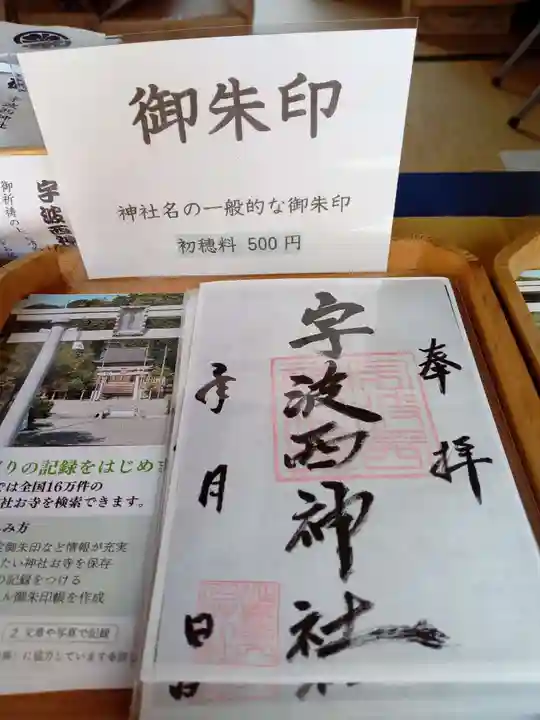 御朱印
神社名の一般的な御朱印
初穂料 500円
奉拝
宇波西神社
年 月 日
の記録をはじめ
では全国16万件の
社お寺を検索できます。
み方
御朱印など情報が充実
たい神社お寺を保存
の記録をつける
ル御朱印帳を作成
2 文章や写真で記録
に協力しています
宇波西神
御祈祷の